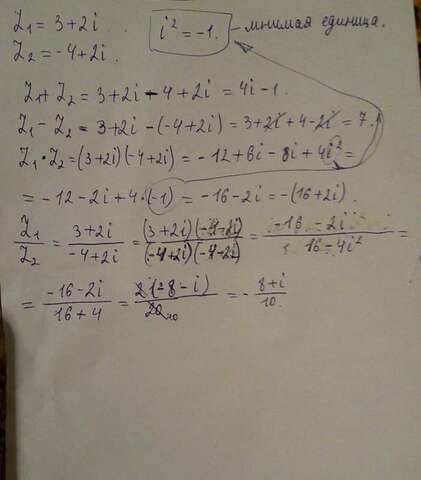 Z₁ = 3+2i
i² = -1. - мнимая единица.
Z₂ = -4+2i.
Z₁+Z₂ = 3+2i-4+2i = 4i-1.
Z₁-Z₂ = 3+2i-(-4+2i) = 3+2i+4-2i = 7.
Z₁·Z₂ = (3+2i)(-4+2i) = -12+6i-8i+4i² =
= -12-2i+4·(-1) = -16-2i = -(16+2i).
Z₁/Z₂ = (3+2i)/(-4+2i) = (3+2i)(-4-2i)/(-4+2i)(-4-2i) = (-16-2i)/(16-4i²) =
= (-16-2i)/(16+4) = 2(-8-i)/20 10 = -(8+i)/10.